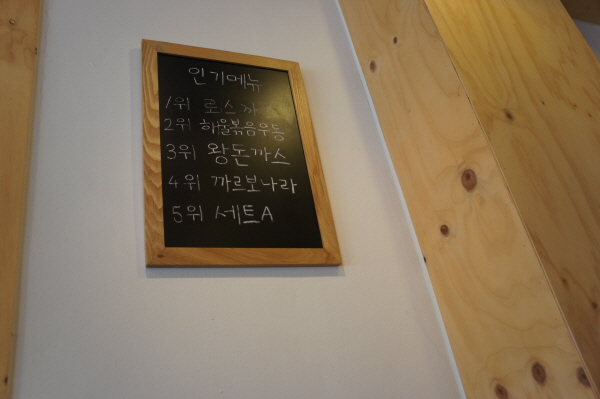 인기메뉴
1위 로스까스
2위 해물볶음우동
3위 왕돈까스
4위 까르보나라
5위 세트A